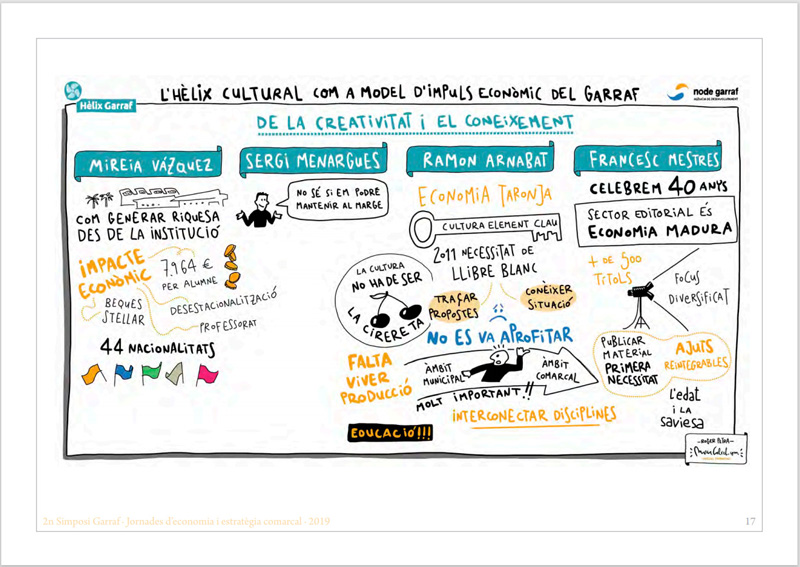 L'HÈLIX CULTURAL COM A MODEL D'IMPULS ECONÒMIC DEL GARRAF
Hèlix Garraf
node garraf
AGÈNCIA DE DESENVOLUPAMENT
DE LA CREATIVITAT i EL CONEIXEMENT
MIREIA VÁZQUEZ
COM GENERAR RIQUESA
DES DE LA INSTITUCIÓ
IMPACTE
ECONÒMIC
7.964 €
PER ALUMNE
BEQUES
STELLAR
DESESTACIONALITZACIÓ
PROFESSORAT
44 NACIONALITATS
SERGI MENARGUES
NO SÉ SI EM PODRÉ
MANTENIR AL MARGE
RAMON ARNABAT
ECONOMIA TARONJA
CULTURA ELEMENT CLAU
2011 NECESSITAT DE
LLIBRE BLANC
TRAÇAR
PROPOSTES
CONÈIXER
SITUACIÓ
LA CULTURA
NO HA DE SER
LA CIRERETA
NO ES VA APROFITAR
FALTA
VIVER
PRODUCCIÓ
ÀMBIT
MUNICIPAL
ÀMBIT
COMARCAL
MOLT IMPORTANT!!
INTERCONECTAR DISCIPLINES
EDUCACIÓ!!!
FRANCESC MESTRES
CELEBREM 40 ANYS
SECTOR EDITORIAL ÉS
ECONOMIA MADURA
+ DE 500
TITOLS
FOCUS
DIVERSIFICAT
PUBLICAR
MATERIAL
PRIMERA
NECESSITAT
AJUTS
REINTEGRABLES
L'edat
i la
saviesa
2n Simposi Garraf - Jornades d'economia i estratègia comarcal - 2019
17